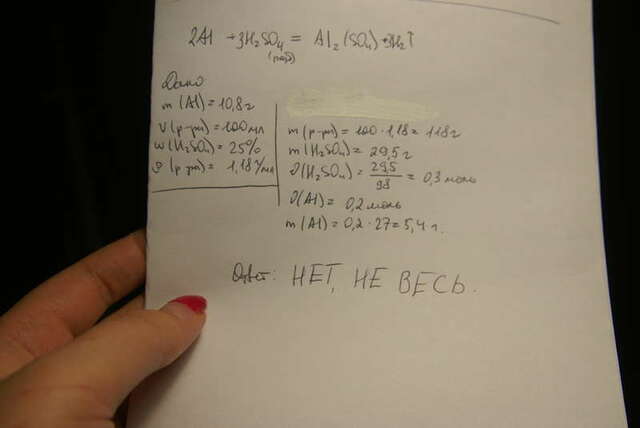 2Al + 3H₂SO₄ = Al₂(SO₄) + 3H₂↑
(разб)
Дано
m(Al) = 10,8 г
V(р-ра) = 100 мл
w(H₂SO₄) = 25%
ρ(р-ра) = 1,18 г/мл
m(р-ра) = 100 · 1,18 = 118 г
m(H₂SO₄) = 29,5 г
ν(H₂SO₄) = 29,5/98 = 0,3 моль
ν(Al) = 0,2 моль
m(Al) = 0,2 · 27 = 5,4 г.
Ответ: НЕТ, НЕ ВЕСЬ.